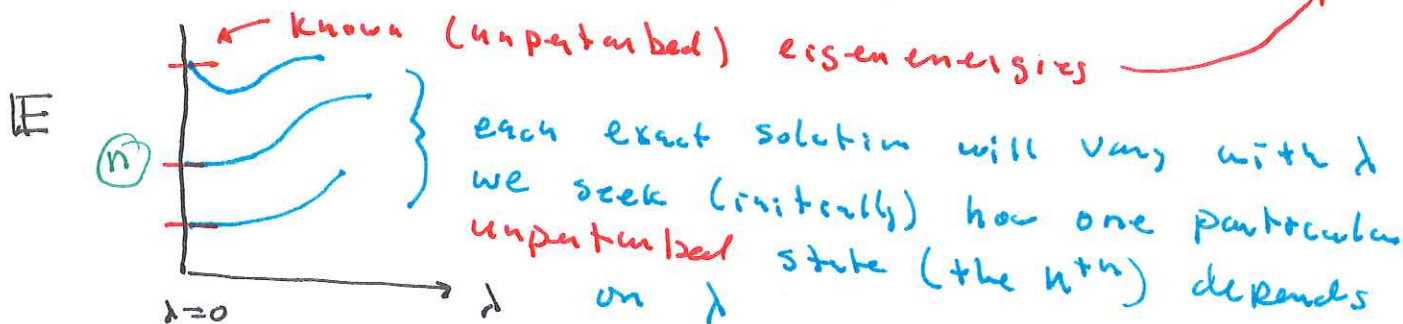 known (unperturbed) eigenenergies
E
n
each exact solution will vary with λ
we seek (initially) how one particular
unperturbed state (the nth) depends
λ=0
λ
on λ